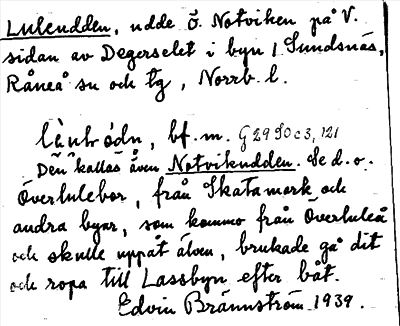 Luleudden, udde ö. Notviken på V.
sidan av Degerselet i byn 1 Sundsnäs,
Råneå sn och tg, Norrb. l.
bf. m. G 29 S0 c 3, 121
Den kallas även Notvikudden. Se d. o.
Överlulebor, från Skatamark och
andra byar, som kommo från Överluleå
och skulle uppåt älven, brukade gå dit
och ropa till Lassbyn efter båt.
Edvin Brännström 1939.